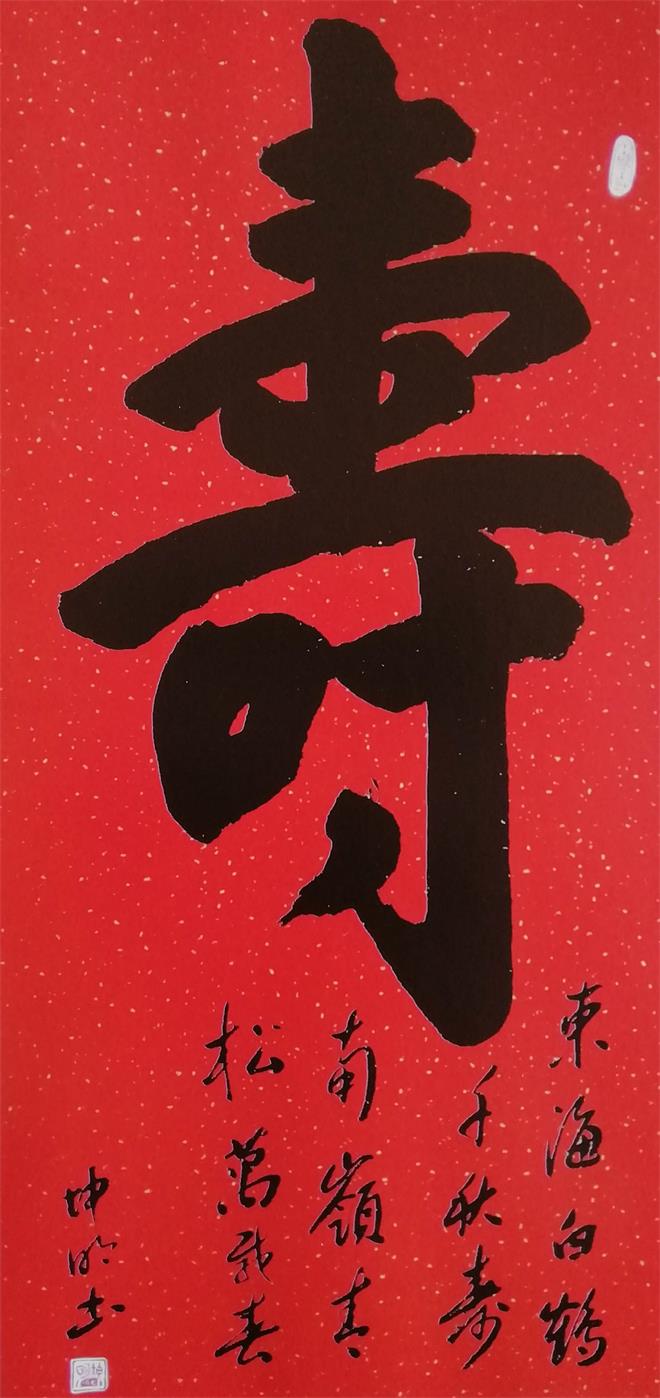 壽
東海白鶴
千秋壽
南嶺青
松萬載春
坤明書